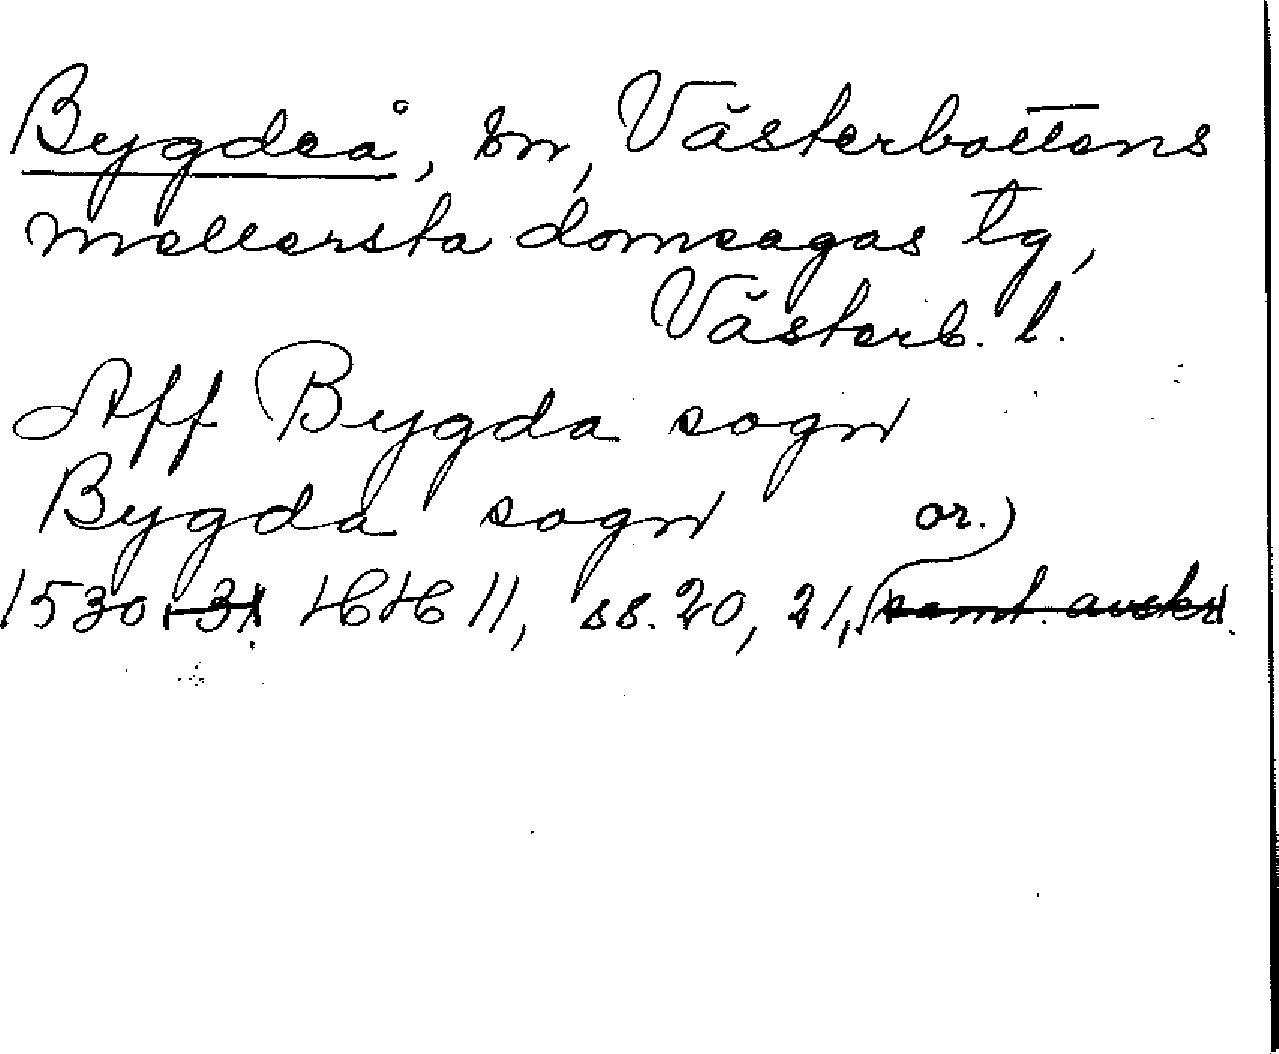 Bygdeå, sn, Västerbottens
mellersta domsagas tg,
Västerb. l.
Aff Bygda sogn
Bygda sogn or.)
1530-31 HH 11, ss. 20, 21, samt. avskr.